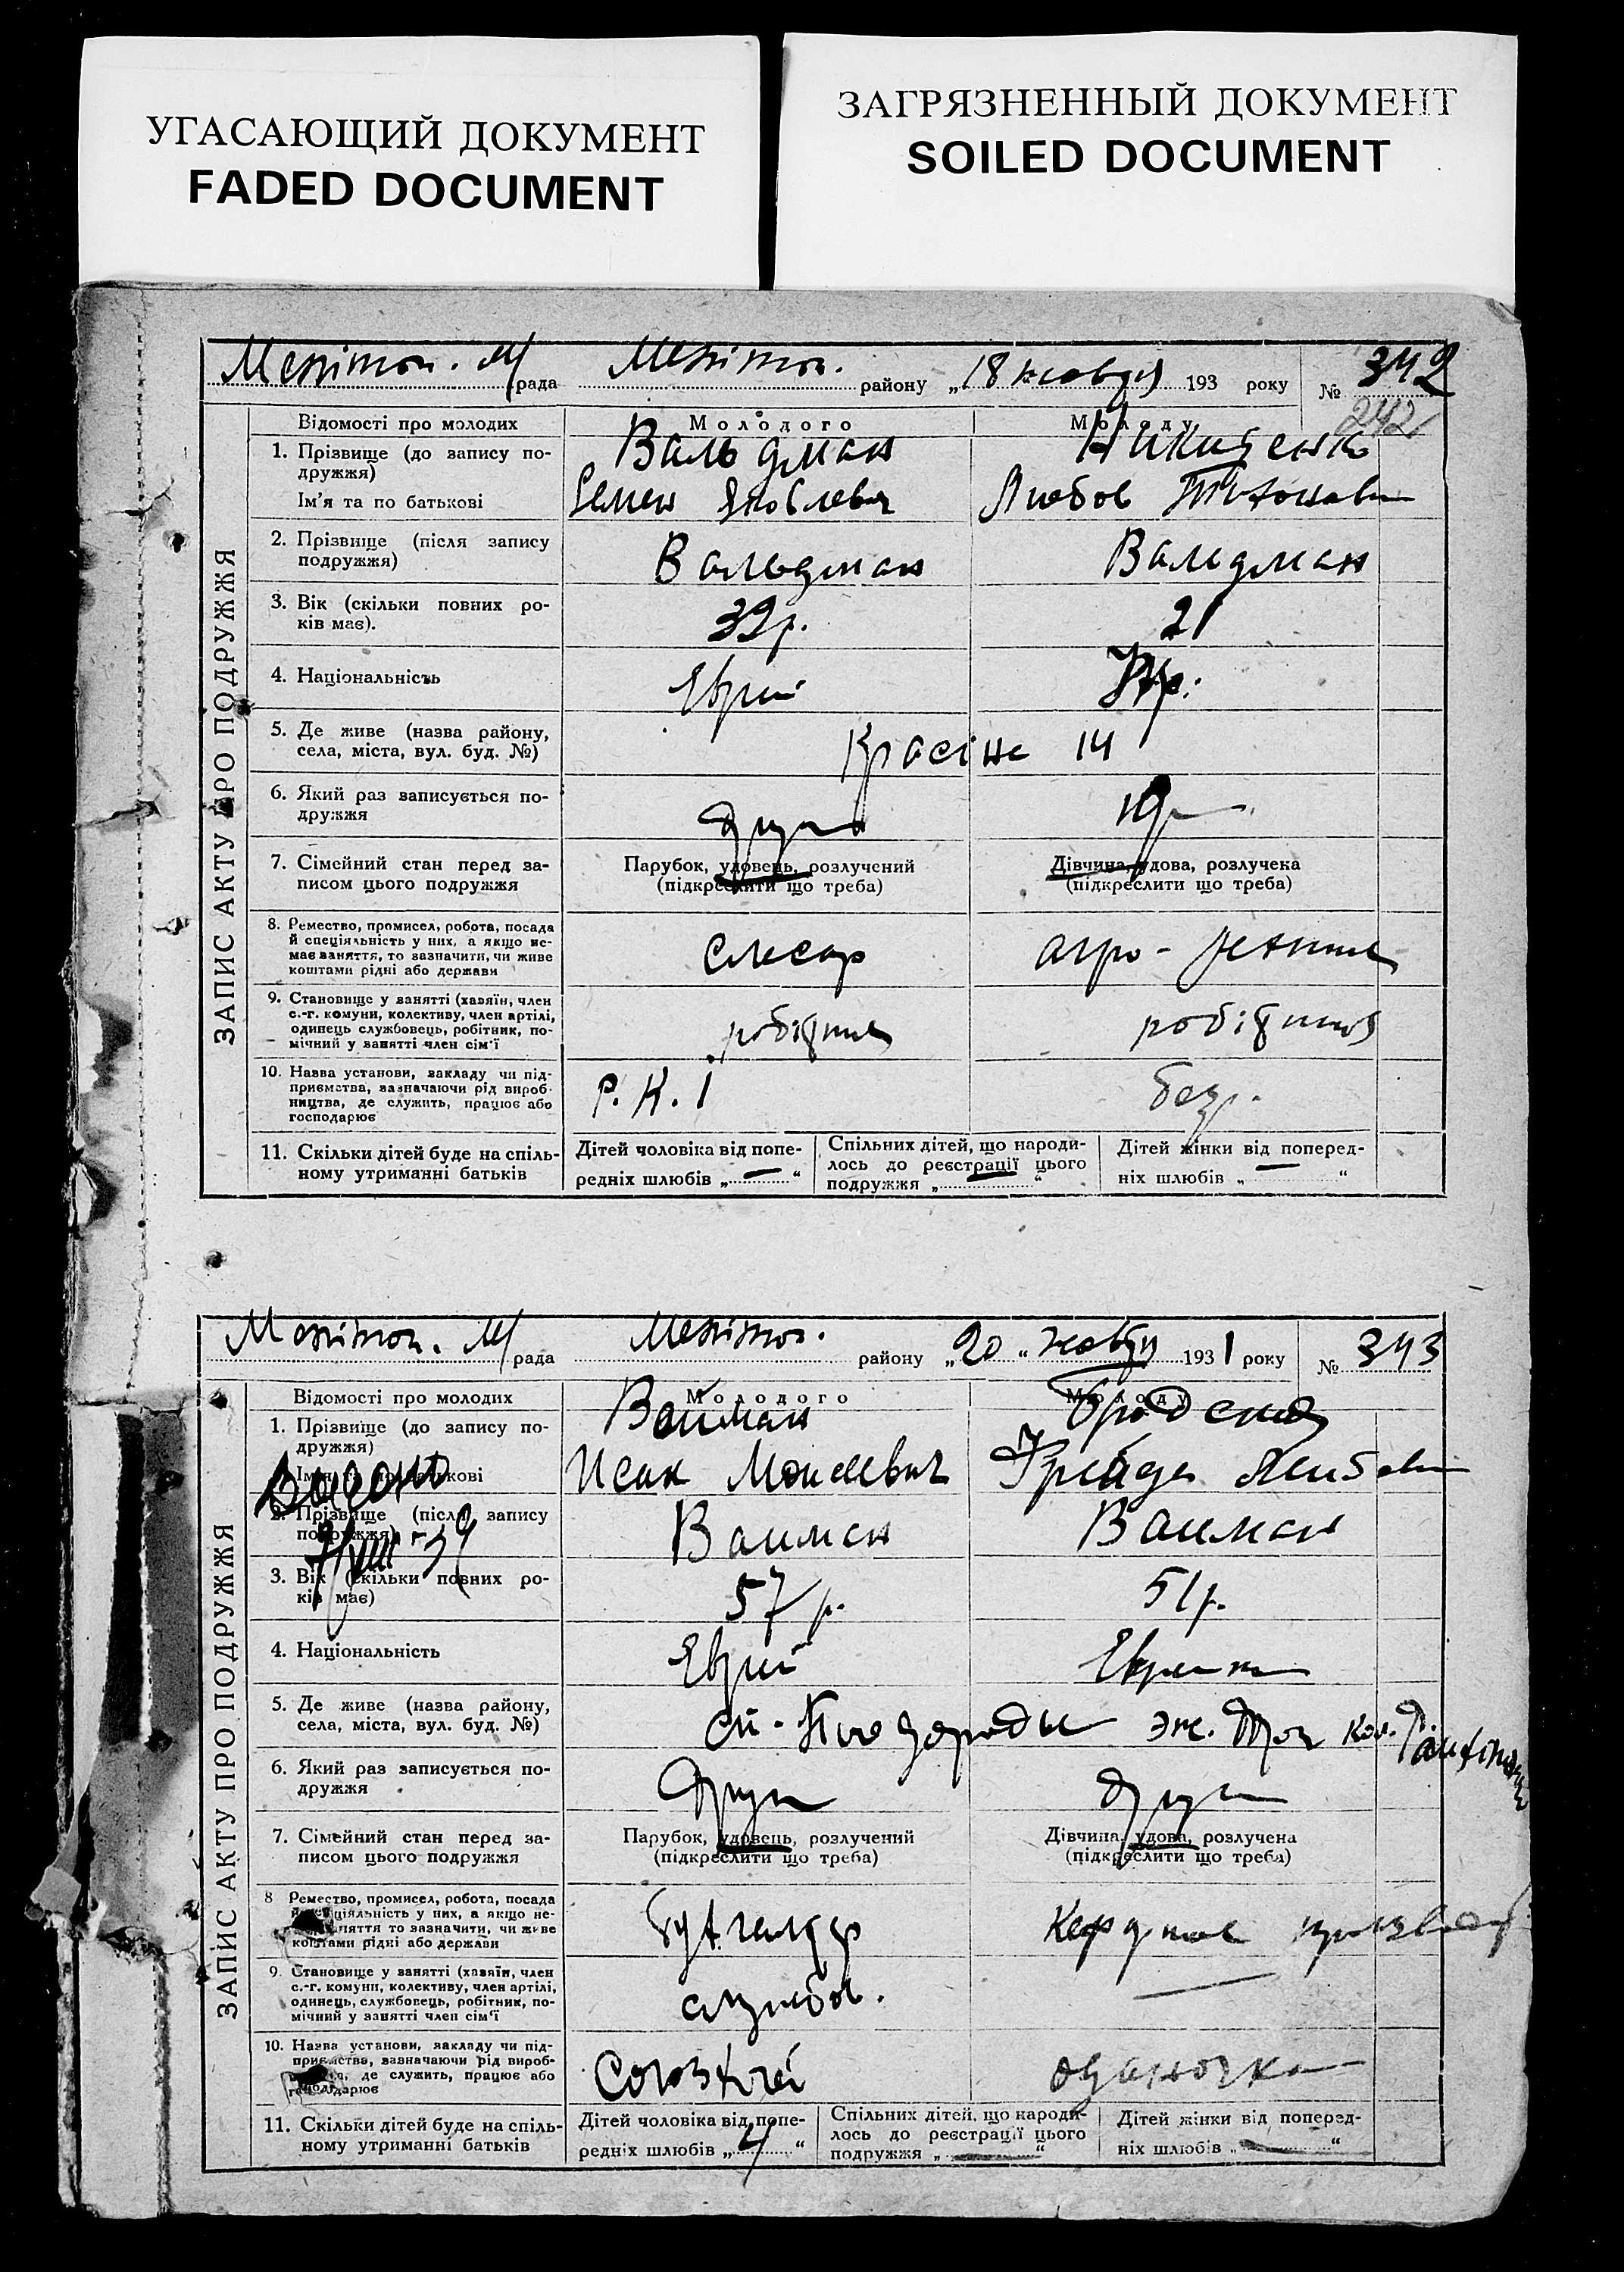 УГАСАЮЩИЙ ДОКУМЕНТ
FADED DOCUMENT
ЗАГРЯЗНЕННЫЙ ДОКУМЕНТ
SOILED DOCUMENT
ЗАПИС АКТУ ПРО ПОДРУЖЖЯ
рада району „18 жовтня 193 року № 342
242
Відомості про молодих Молодого Молоду
1. Прізвище (до запису по-
дружжя) Вальдман Никитенко
Ім'я та по батькові Семен Яковлевич Любов
2. Прізвище (після запису
подружжя) Вальдман Вальдман
3. Вік (скільки повних ро-
ків має). 39 р. 21
4. Національність Еврей Укр.
5. Де живе (назва району,
села, міста, вул. буд. №) Красіна 14
6. Який раз записується по-
дружжя
7. Сімейний стан перед за-
писом цього подружжя
Парубок, удовець, розлучений
(підкреслити що треба)
Дівчина, удова, розлучена
(підкреслити що треба)
8. Ремество, промисел, робота, посада
й спеціяльність у них, а якщо не-
має заняття, то зазначити, чи живе
коштами рідні або держави
слесар агро-
9. Становище у занятті (хазяїн, член
с.-г. комуни, колективу, член артілі,
одинець службовець, робітник, по-
мічний у занятті член сім'ї
робітник робітниця
10. Назва установи, закладу чи під-
приємства, зазначаючи рід вироб-
ництва, де служить, працює або
господарює
Р. К. І безр.
11. Скільки дітей буде на спіль-
ному утриманні батьків
Дітей чоловіка від попе-
редніх шлюбів „ — “
Спільних дітей, що народи-
лось до реєстрації цього
подружжя „ — “
Дітей жінки від поперед-
ніх шлюбів „ — “
ЗАПИС АКТУ ПРО ПОДРУЖЖЯ
рада району „20 „ жовтня 1931 року № 343
Відомості про молодих Молодого Молоду
1. Прізвище (до запису по-
дружжя) Вайман Бродская
Ім'я та по батькові Исак Моисеевич Фрейда Лейбовн
2. Прізвище (після запису
подружжя) Вайман Вайман
3. Вік (скільки повних ро-
ків має) 57 р. 51 р.
4. Національність Еврей Еврейка
5. Де живе (назва району,
села, міста, вул. буд. №)
6. Який раз записується по-
дружжя
7. Сімейний стан перед за-
писом цього подружжя
Парубок, удовець, розлучений
(підкреслити що треба)
Дівчина, удова, розлучена
(підкреслити що треба)
8 Ремество, промисел, робота, посада
й спеціяльність у них, а якщо не-
має заняття то зазначити, чи живе
коштами рідні або держави
бухгалтер
9. Становище у занятті (хазяїн, член
с.-г. комуни, колективу, член артілі,
одинець, службовець, робітник, по-
мічний у занятті член сім'ї
службов. —
10. Назва установи, закладу чи під-
приємства, зазначаючи рід вироб-
ництва, де служить, працює або
господарює
одиночка
11. Скільки дітей буде на спіль-
ному утриманні батьків
Дітей чоловіка від попе-
редніх шлюбів „ 4 “
Спільних дітей, що народи-
лось до реєстрації цього
подружжя „ — “
Дітей жінки від поперед-
ніх шлюбів „ — “